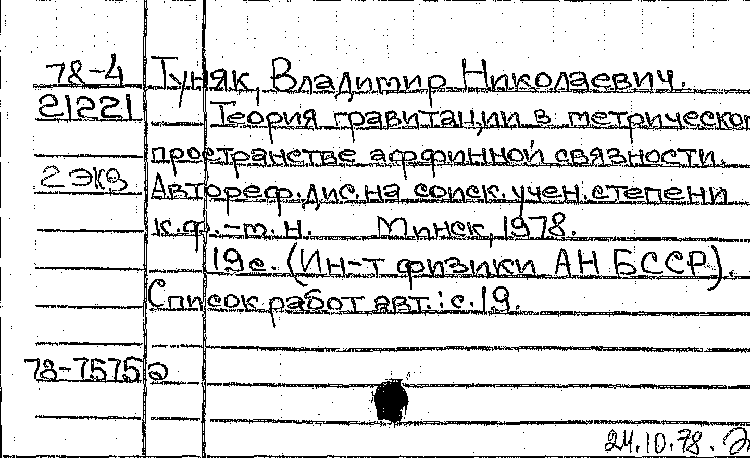 78-4 Туняк, Владимир Николаевич.
21221 Теория гравитации в метрическом
пространстве аффинной связности.
2 экз Автореф. дис. на соиск. учен. степени
к.ф.-т.н. Минск, 1978.
19с. (Ин-т физики АН БССР).
Список работ авт.: с.19.
78-7575б
24.10.78.